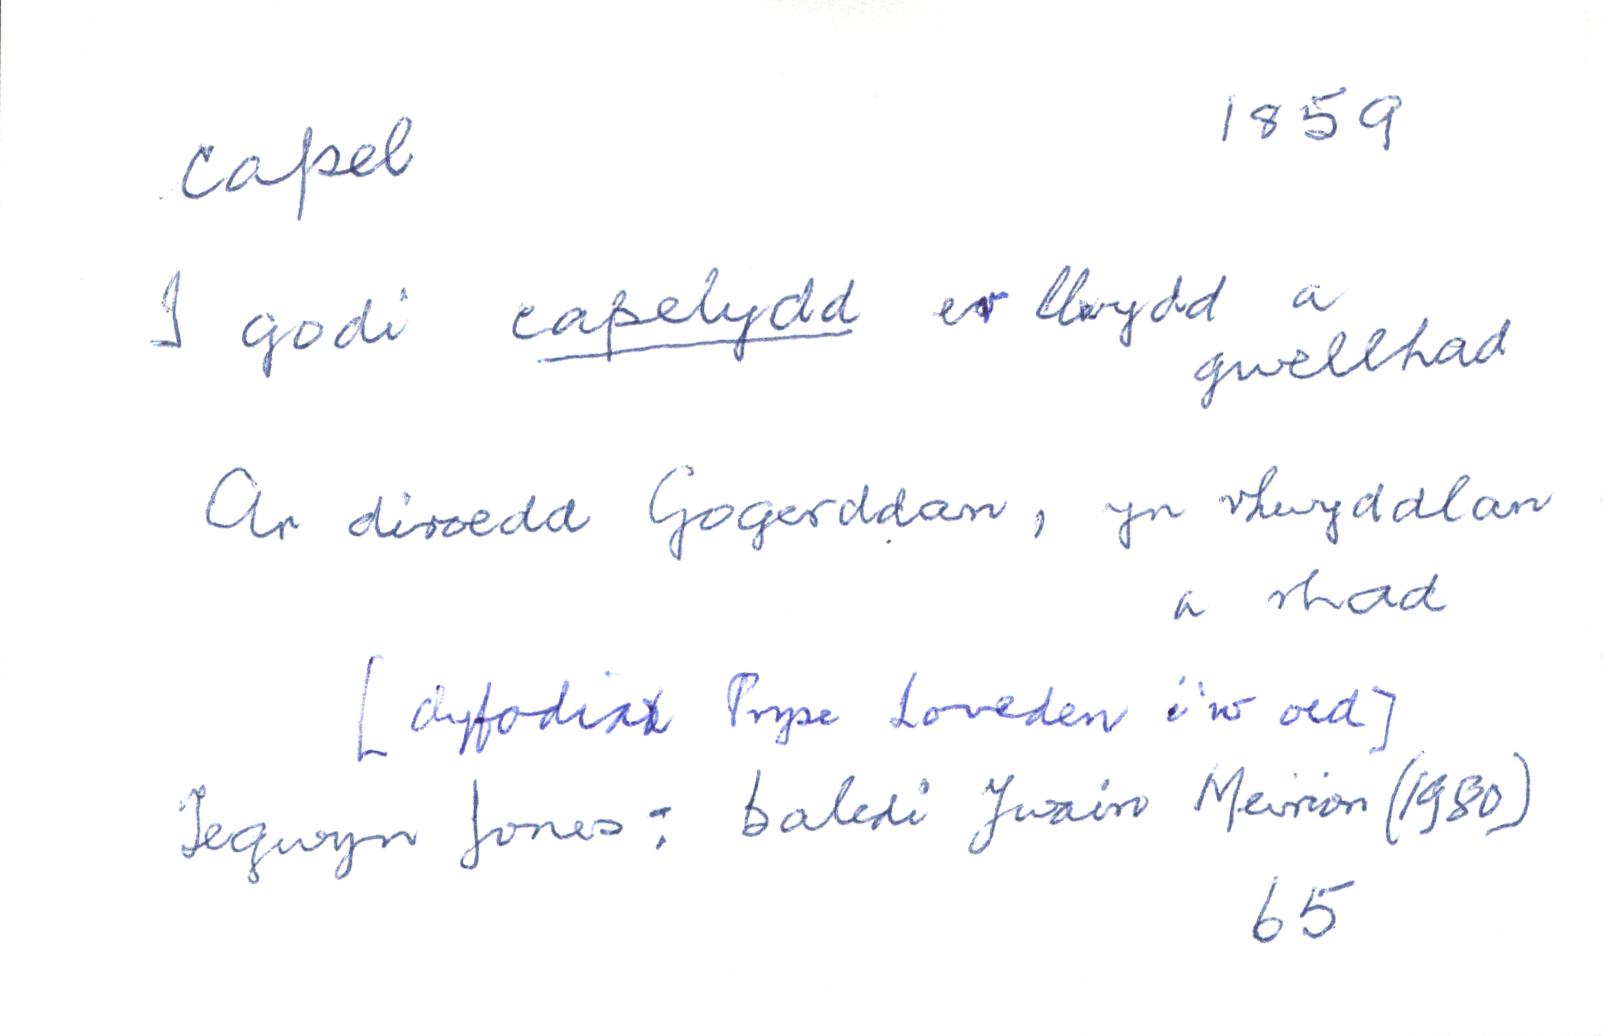 capel 1859
I godi capelydd er llwydd a
gwellhad
Ar diroedd Gogerddan, yn rhwyddlan
a rhad
[dyfodiad Pryse Loveden i'w oed]
Tegwyn Jones: baledi Ywain Meirion (1980)
65